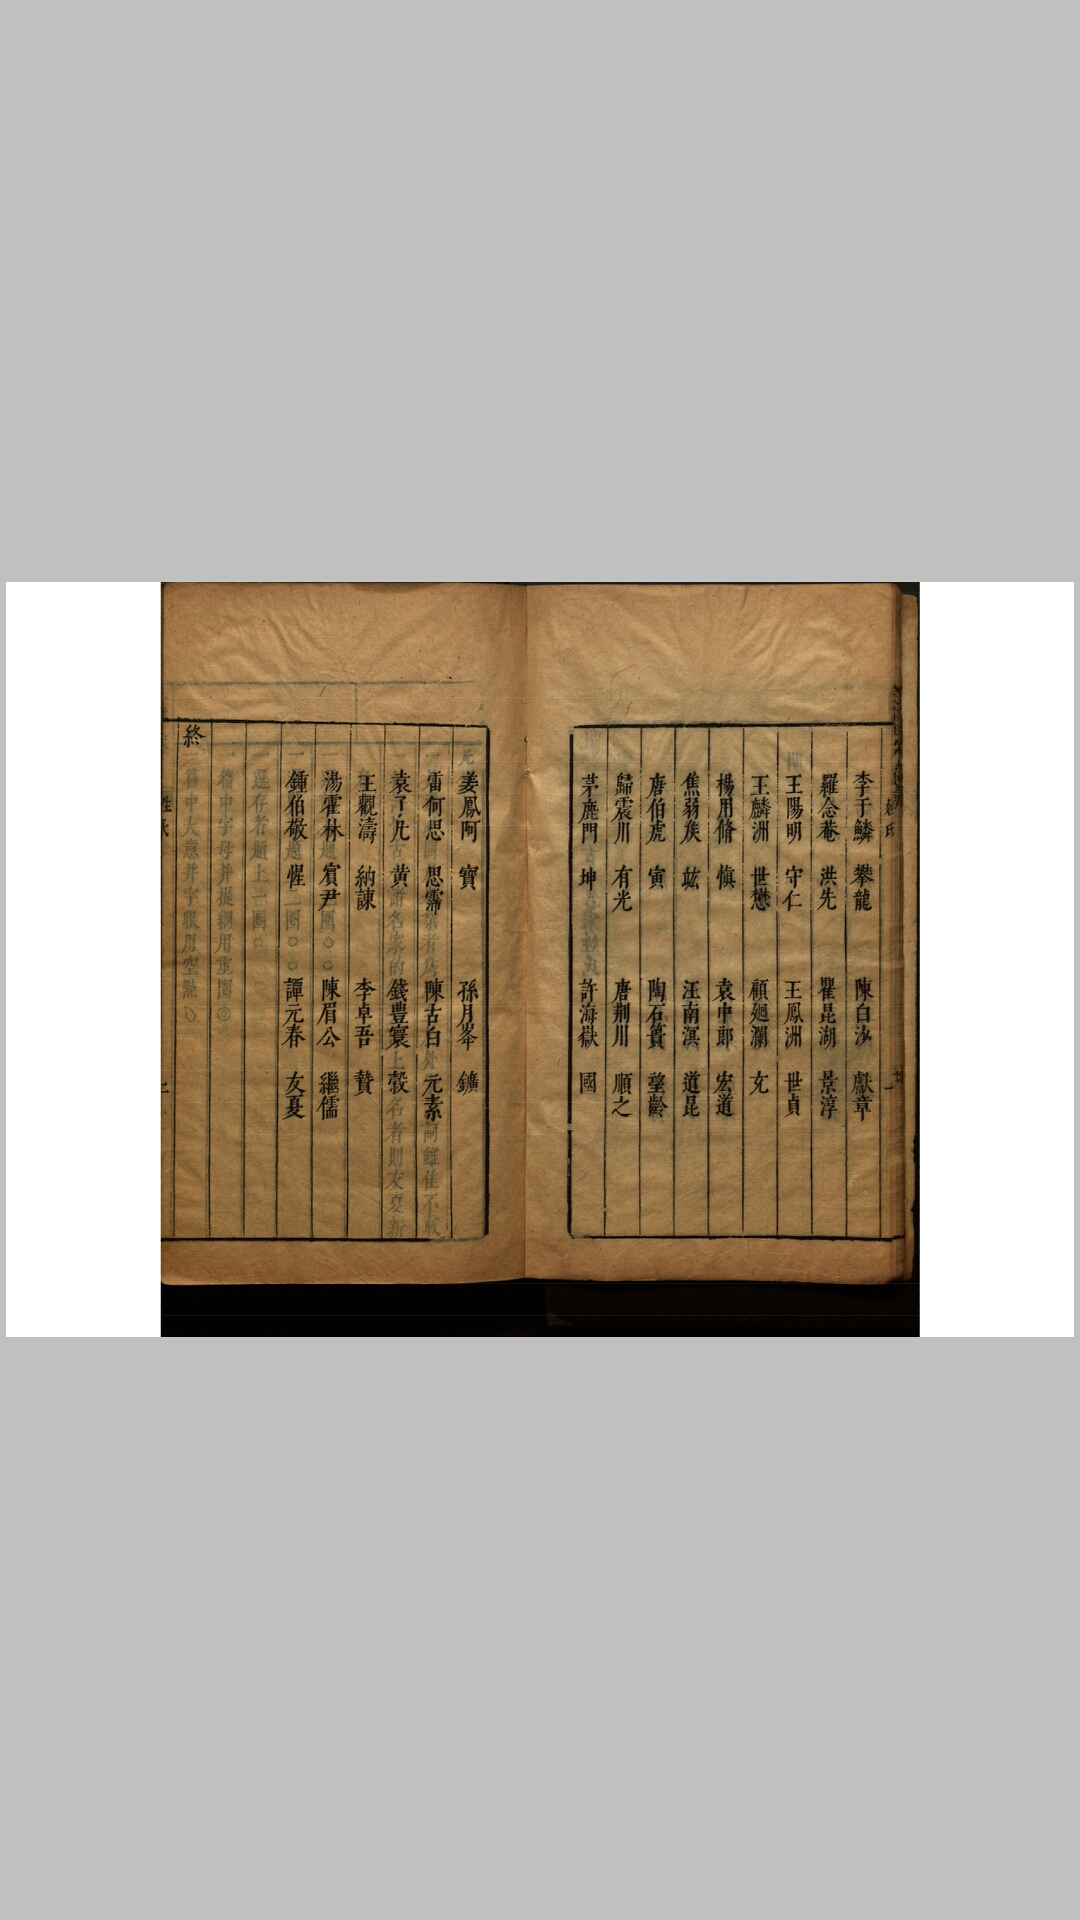 姓氏
一
李于鱗 攀龍 陳白沙 獻章
羅念菴 洪先 瞿昆湖 景淳
王陽明 守仁 王鳳洲 世貞
王麟洲 世懋 顧廻瀾 充
楊用脩 慎 袁中郎 宏道
焦弱矦 竑 汪南溟 道昆
唐伯虎 寅 陶石簣 望齡
歸震川 有光 唐荆川 順之
茅鹿門 坤 許海嶽 國
姜鳳阿 寶 孫月峯 鑛
雷何思 思霈 陳古白 元素
袁了凡 黃 錢豐寰 㲄
王觀濤 納諫 李卓吾 贄
湯霍林 賓尹 陳眉公 繼儒
鍾伯敬 惺 譚元春 友夏
終
姓氏
二